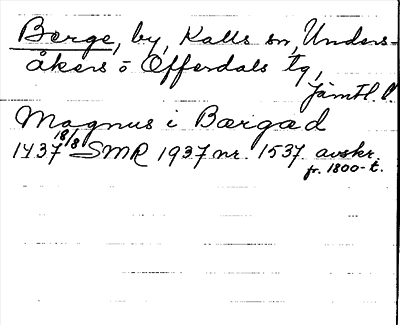 Berge, by, Kalls sn, Unders-
åkers o Offerdals tg,
Jämtl. l.
Magnus i Bærgæd
1437 18/8 SMR 1937 nr. 1537. avskr.
fr. 1800-t.